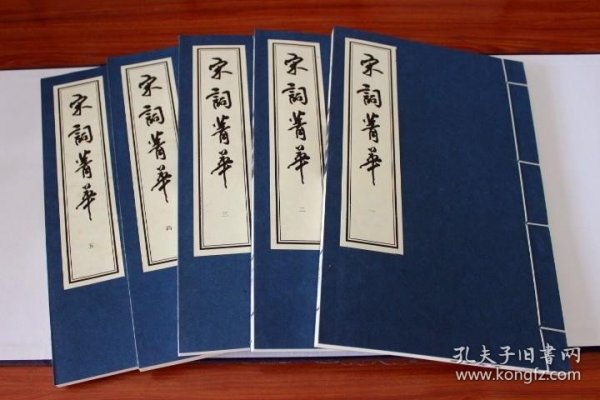 宋詞菁華
五
宋詞菁華
四
宋詞菁華
三
宋詞菁華
二
宋詞菁華
一
孔夫子旧書网
www.kongfz.com